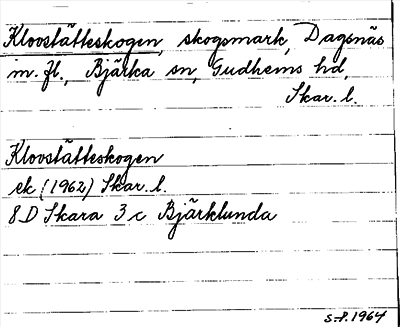 Kloostätteskogen, skogsmark, Dagsnäs
m. fl., Bjärka sn, Gudhems hd,
Skar. l.
Kloostätteskogen
ek (1962) Skar. l.
8D Skara 3 c Bjärklunda
S.P. 1964